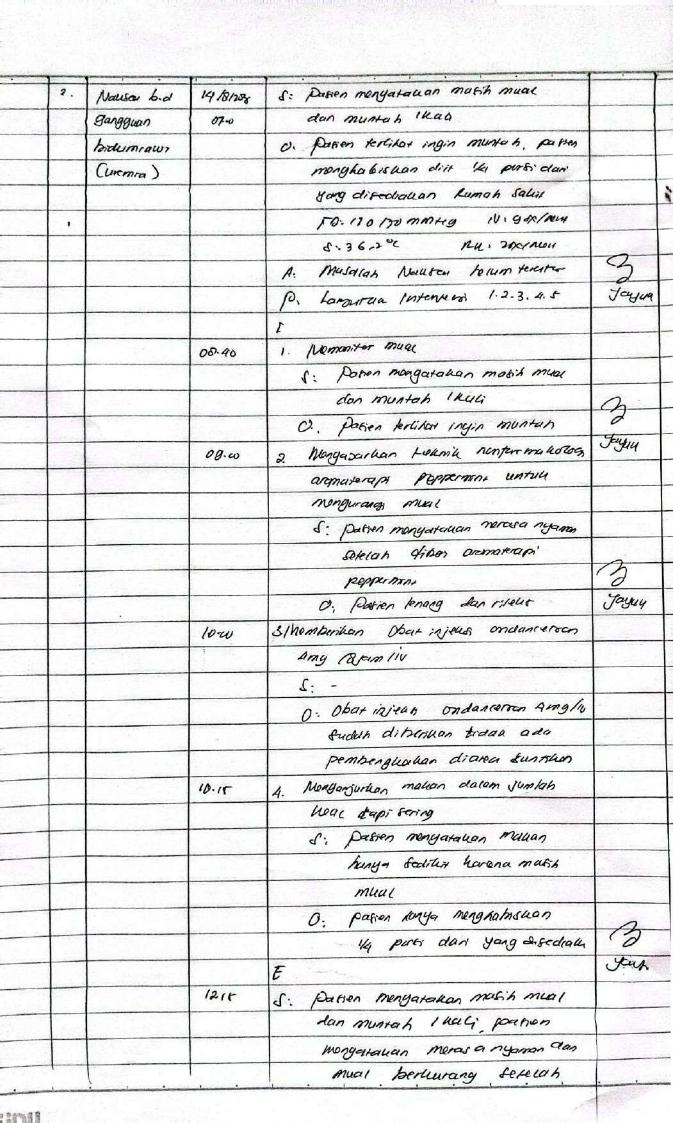 2. Nausea b.d 19/8/2025 S: Pasien menyatakan masih mual
gangguan 07.00 dan muntah 1 kali
biokimiawi O. Pasien terlihat ingin muntah, pasien
(uremia) menghabiskan diit 1/4 porsi dari
yang disediakan Rumah Sakit
TD: 170/70 mmHg N: 90x/menit
S: 36.2°C RR: 20x/menit
A. Masalah Nausea belum teratasi
P. Lanjutkan Intervensi 1.2.3.4.5
I
08.40 1. Memonitor mual
S: Pasien mengatakan masih mual
dan muntah 1 kali
O. Pasien terlihat ingin muntah
09.00 2. Mengajarkan teknik nonfarmakologi
aromaterapi peppermint untuk
mengurangi mual
S: pasien menyatakan merasa nyaman
setelah diberi aromaterapi
peppermint
O: Pasien tenang dan rileks
10.00 3. Memberikan Obat injeksi ondancetron
4mg /iv
S: -
O: Obat injeksi ondancetron 4mg/iv
sudah diberikan tidak ada
pembengkakan diarea suntikan
10.15 4. Menganjurkan makan dalam jumlah
kecil tapi sering
S: pasien menyatakan makan
hanya sedikit karena masih
mual
O: pasien hanya menghabiskan
1/4 porsi dari yang disediakan
E
12.15 S: Pasien menyatakan masih mual
dan muntah 1 kali, pasien
mengatakan merasa nyaman dan
mual berkurang setelah